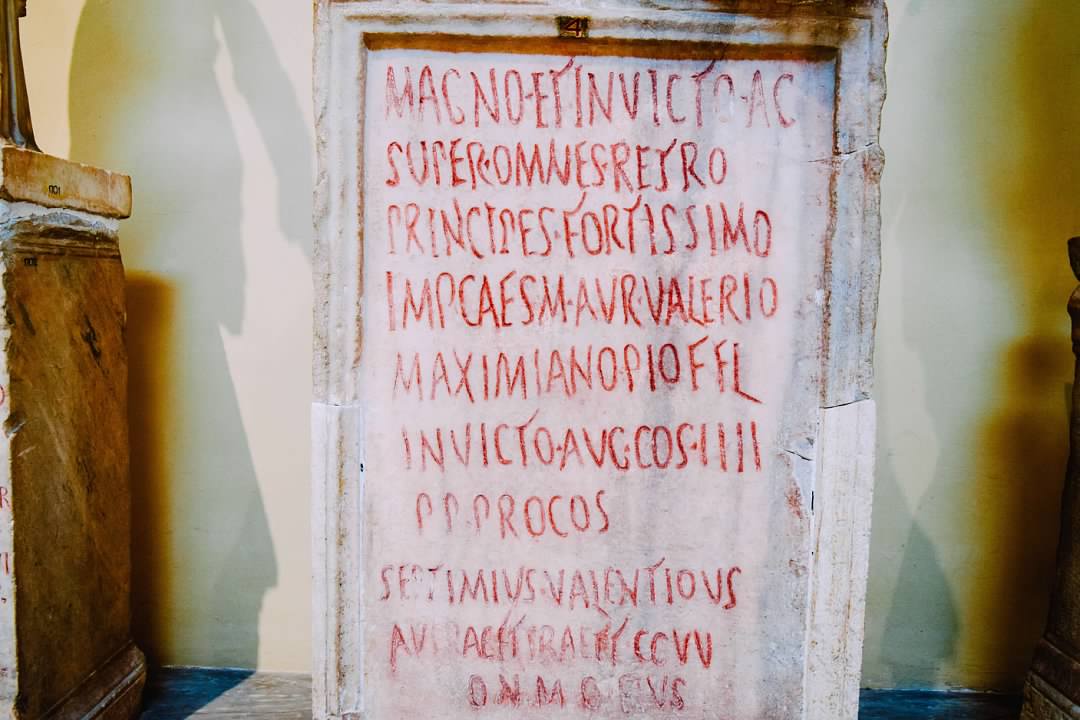 4
MAGNO·ET INVICTO·AC
SUPER·OMNES·RETRO
PRINCIPES·FORTISSIMO
IMP CAES M·AVR·VALERIO
MAXIMIANO·PIO F FL
INVICTO·AVG·COS·IIII
P P·PROCOS
SEPTIMIVS·VALENTIO VS
PRAEF PRAETT CC VV
D N M Q EIVS